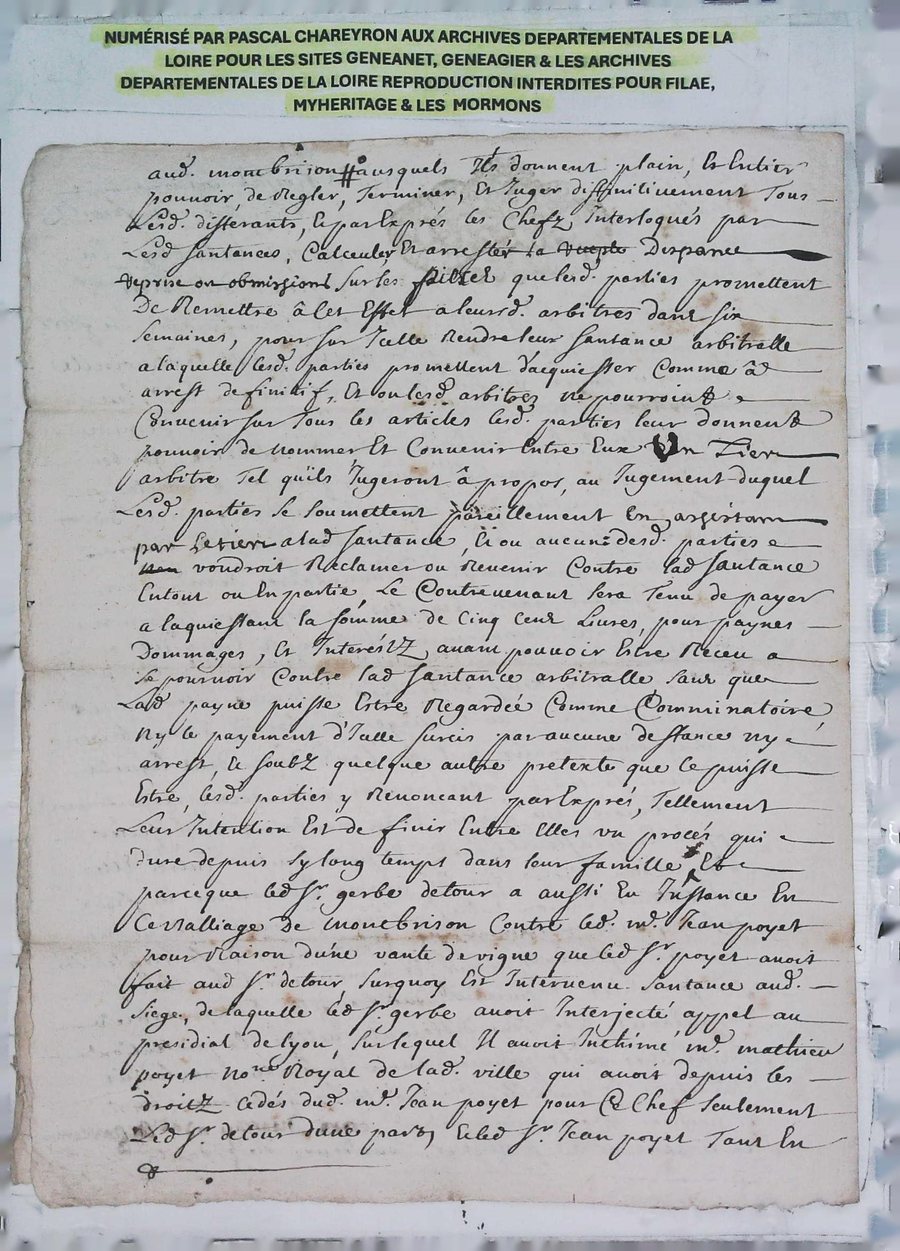 NUMÉRISÉ PAR PASCAL CHAREYRON AUX ARCHIVES DEPARTEMENTALES DE LA
LOIRE POUR LES SITES GENEANET, GENEAGIER & LES ARCHIVES
DEPARTEMENTALES DE LA LOIRE REPRODUCTION INTERDITES POUR FILAE,
MYHERITAGE & LES MORMONS
aud. montbrison # ausquels Ils donnent plain, Et Entier
pouvoir, de Regler, Terminer, Et Juger diffinitivement Tous
Lesd. differants, Et par Exprés les Chefz Interloqués par
Lesd santances, Calculer Et arrester la
reprise ou obmissions sur les que lesd. parties promettent
De Remettre â Cet Effet a leursd. arbitres dans six
semaines, pour sur Icelle Rendre leur santance arbitralle
a laquelle lesd. parties promettent d'acquiesser Comme â
arrest definitif, Et ou lesd arbitres ne pourroint
Convenir sur Tous les articles lesd. parties leur donnent
pouvoir de nommer Et Convenir Entre Eux Un Tiers
arbitre Tel qu'ils Jugeront â propos, au Jugement duquel
Lesd. parties se soumettent pareillement En
par Le tiers a lad santance, Et ou aucune desd. parties
voudroit Reclamer ou Revenir Contre lad santance
Entout ou En partie, Le Contrevenant sera Tenu de payer
a laquiessant la somme de Cinq Cent Livres, pour paynes
Dommages, Et Interéstz avant pouvoir Estre Receu a
se pourvoir Contre lad santance arbitralle sans que
Lad payne puisse Estre Regardée Comme Comminatoire,
Ny le payement d'Icelle surcis par aucune deffance ny
arrest, Et soubz quelque autre pretexte que Ce puisse
Estre, lesd. parties y Renoncant par Exprés, Tellement
Leur Intention Est de finir Entre Elles un procés qui
dure depuis sy long temps dans leur famille, Et
parceque led sr. gerbe detour a aussi Eu Instance En
Ce Balliage De montbrison Contre led. me. Jean poyet
pour Raison d'une vante de vigne que led sr. poyet avoit
fait aud sr. detour, surquoy Est Intervenu santance aud.
siege, de laquelle led sr. gerbe avoit Interjecté appel au
presidial de lyon, sur lequel Il avoit Inthimé me. mathieu
poyet nore. Royal de lad. ville qui avoit depuis les
droitz Cedés dud. me. Jean poyet pour Ce Chef seulement
Led sr. detour d'une part, Et led sr. Jean poyet Tant En